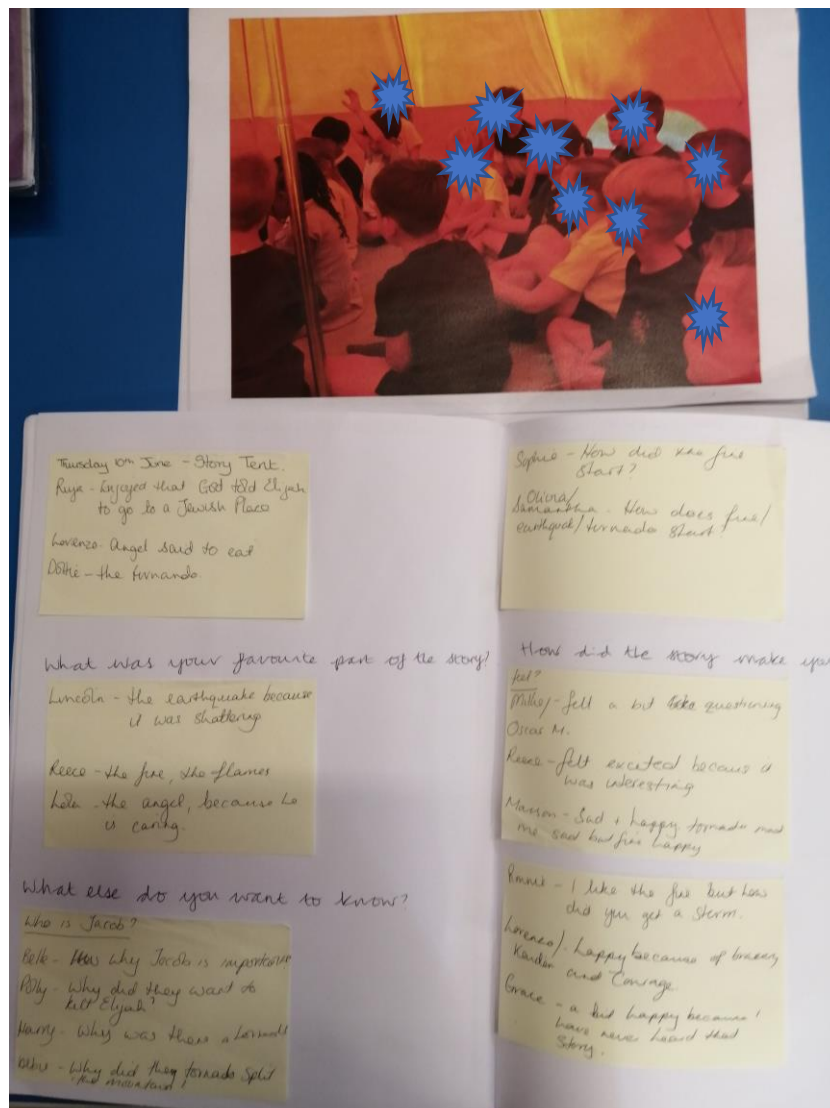 Thursday 10th June - Story Tent.
Ruya - Enjoyed that God told Elijah
to go to a Jewish Place
Lorenzo - Angel said to eat
Dottie - the turnando.
What was your favourite part of the story?
Lincoln - the earthquake because
it was shattering
Reece - the fire, the flames
Lola - the angel, because he
is caring.
What else do you want to know?
Who is Jacob?
Belle - why Jacob is important
Polly - Why did they want to
kill Elijah?
Harry - Why was there a
- Why did they tornado split
the mountain!
Sophie - How did the fire
start?
Olivia/
Samantha - How does fire/
earthquack/tornado start?
How did the story make you
feel?
- felt a bit questioning
Oscar M.
Reece - felt excited because it
was interesting
- Sad + happy tornado mad
me sad but fire happy
Ronnie - I like the fire but how
did you get a storm.
Lorenzo/ - happy because of bravery
and Courage.
Grace - a bit happy because I
have never heard that
Story.